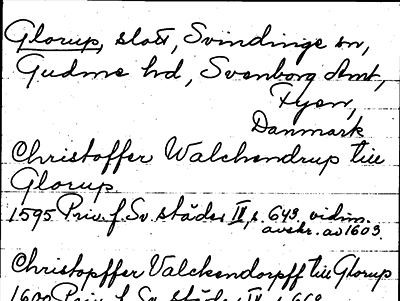 Glorup, slott, Svindinge sn,
Gudme hd, Svenborg Amt,
Fyen,
Danmark
Christoffer Walchendrup till
Glorup
1595 Priv. f. Sv. städer IV, s. 643, vidim.
avskr. av 1603.
Christopffer Valckendorpff till Glorup
1600 Priv. f. Sv. städer IV, s. 660